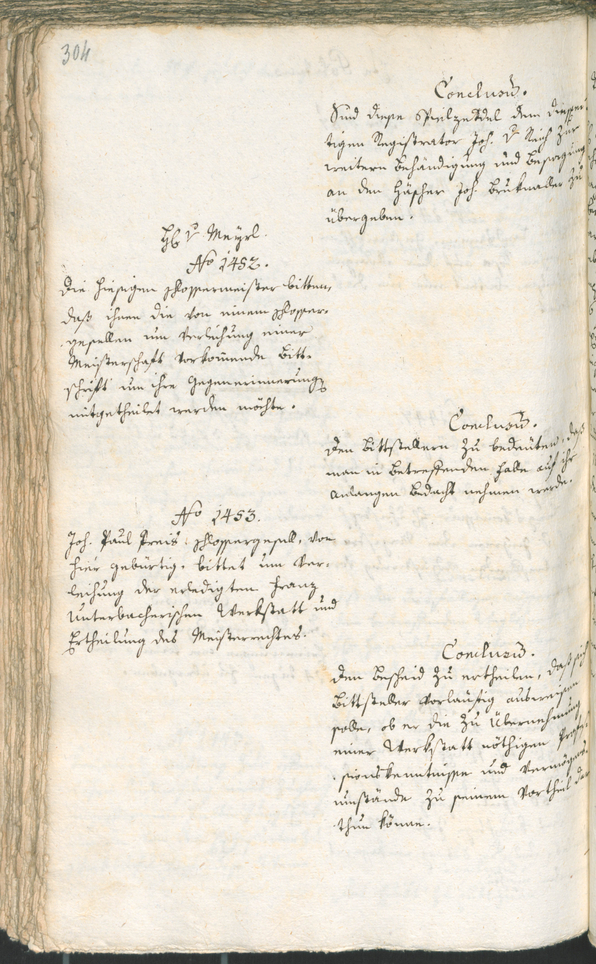 304
Conclusum.
Sind diese Spielzedel dem diesser-
tigen Registrator Joh. v. Reich zur
weitern Behändigung und Besorgung
an den Häscher Joh. Brukmaller zu
übergeben.
H v. Meyrl.
No 1452.
Die hiesigen Schlossermeister bitten,
daß ihnen die von einem Schlosser-
gesellen um Verleihung einer
Meisterschaft vorkommende Bitt-
schrift um ihre Gegenerinnerung
mitgetheilet werden möchte.
Conclusum.
Den Bittstellern zu bedeuten, daß
man in betreffenden falle auf ihr
Anlangen bedacht nehmen werde.
No 1453.
Joh. Paul Preis: Schlossergesell, von
hier gebürtig, bittet um Ver-
leihung der erledigten Franz
Unterbacherischen Werkstatt und
Ertheilung des Meisterrechtes.
Conclusum.
Den Bescheid zu ertheilen, daß sich
Bittsteller vorläufig ausweisen
solle, ob er die zu Übernehmung
einer Werkstatt nöthigen Profes-
sionskenntnisse und Vermögens
umstände zu seinem Vortheil dar
thun könne.